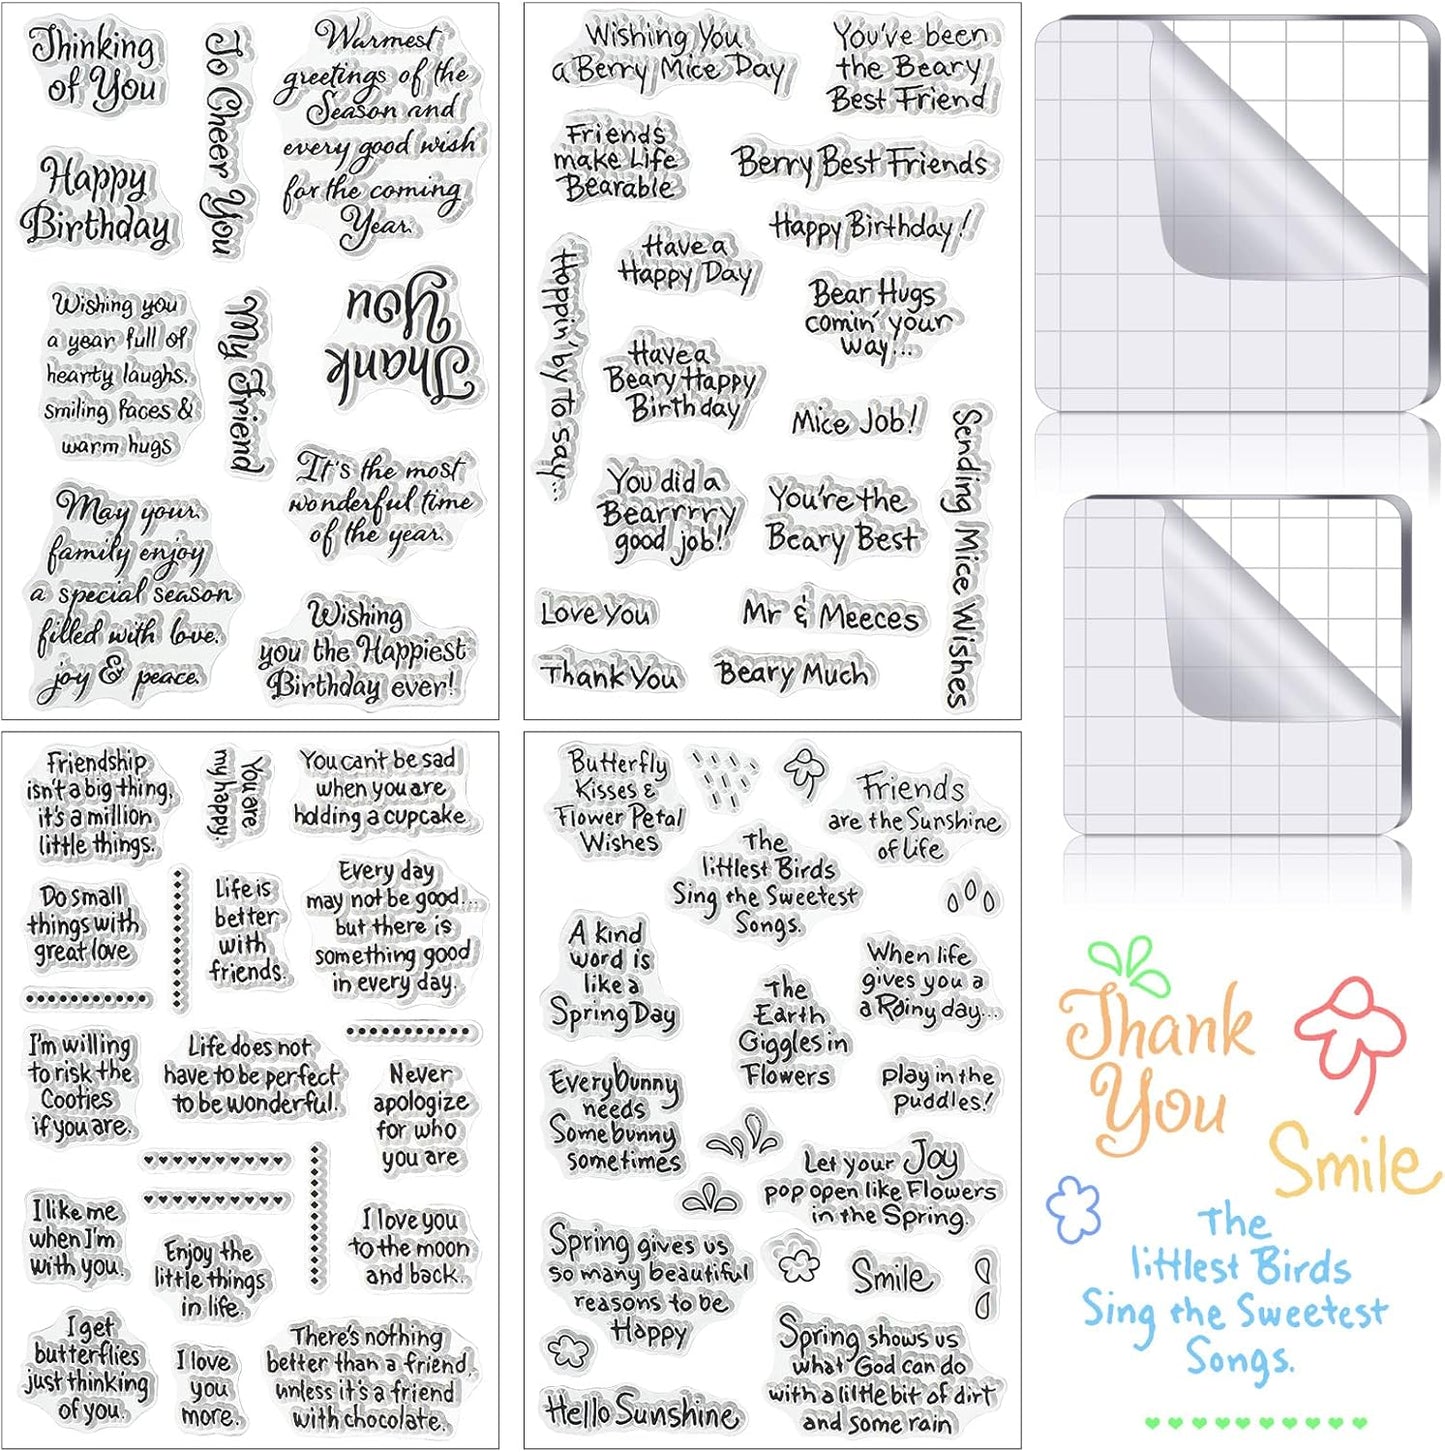 Thinking
of You
To Cheer You
Warmest
greetings of the
Season and
every good wish
for the coming
Year.
Happy
Birthday
Wishing you
a year full of
hearty laughs.
smiling faces &
warm hugs
My Friend
Thank
You
It's the most
wonderful time
of the year.
May your.
family enjoy
a special season
filled with love.
joy & peace.
Wishing
you the Happiest
Birthday ever!
Wishing You
a Berry Mice Day
You've been
the Beary
Best Friend
Friends
make Life
Bearable
Berry Best Friends
Happy Birthday!
Have a
Happy Day
Hoppin' by to say...
Bear Hugs
comin' your
way!...
Have a
Beary Happy
Birthday
Mice Job!
Sending Mice Wishes
You did a
Bearrrry
good job!
You're the
Beary Best
Love You
Mr & Meeces
Thank You
Beary Much
Friendship
isn't a big thing,
it's a million
little things.
You are
my happy.
You can't be sad
when you are
holding a cupcake.
Do small
things with
great love
Life is
better
with
friends.
Every day
may not be good...
but there is
something good
in every day.
I'm willing
to risk the
Cooties
if you are.
Life does not
have to be perfect
to be wonderful.
Never
apologize
for who
you are
I like me
when I'm
with you.
Enjoy the
little things
in life.
I love you
to the moon
and back.
I get
butterflies
just thinking
of you.
I love
you
more.
There's nothing
better than a friend,
unless it's a friend
with chocolate.
Butterfly
Kisses &
Flower Petal
Wishes
Friends
are the Sunshine
of Life
The
littlest Birds
Sing the Sweetest
Songs.
A kind
word is
like a
Spring Day
When life
gives you a
a Rainy day...
The
Earth
Giggles in
Flowers
Play in the
puddles!
Everybunny
needs
Somebunny
sometimes
Let your Joy
pop open like Flowers
in the Spring.
Spring gives us
so many beautiful
reasons to be
Happy
Smile
Spring shows us
what God can do
with a little bit of dirt
and some rain
Hello Sunshine
Thank
You
Smile
The
littlest Birds
Sing the Sweetest
Songs.